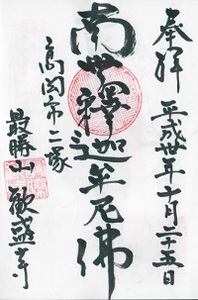 奉拝 平成卅年十月二十五日
南無釋迦牟尼佛
高岡市二塚
最勝山歓盛寺